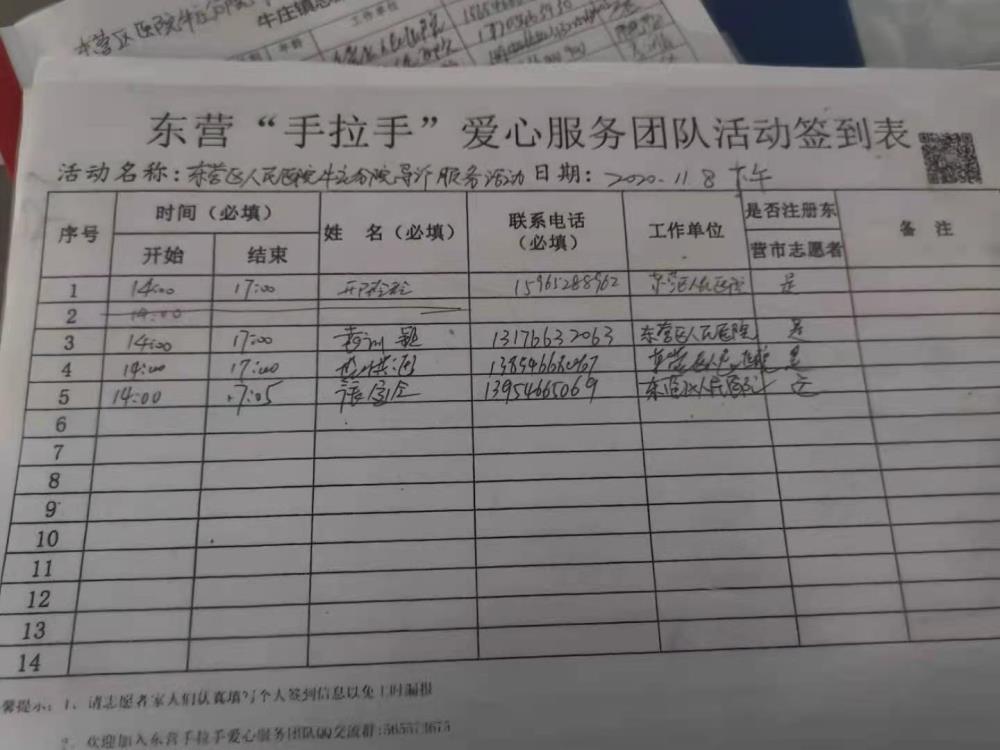 牛庄镇志
工作单位
年龄
东营“手拉手”爱心服务团队活动签到表
活动名称:东营区人民医院牛庄分院导诊服务活动 日期: 2020.11.8 下午
序号 时间（必填） 姓 名（必填） 联系电话（必填） 工作单位 是否注册东营市志愿者 备 注
开始 结束
1 14:00 17:00 15965288962 东营区人民医院 是
2 14:00
3 14:00 17:00 13176632063 东营区人民医院 是
4 14:00 17:00 是
5 14:00 17:05 13954665069 东营区人民医院 是
6
7
8
9
10
11
12
13
14
馨提示: 1、请志愿者家人们认真填写个人签到信息以免上时漏报
2、欢迎加入东营手拉手爱心服务团队QQ交流群: